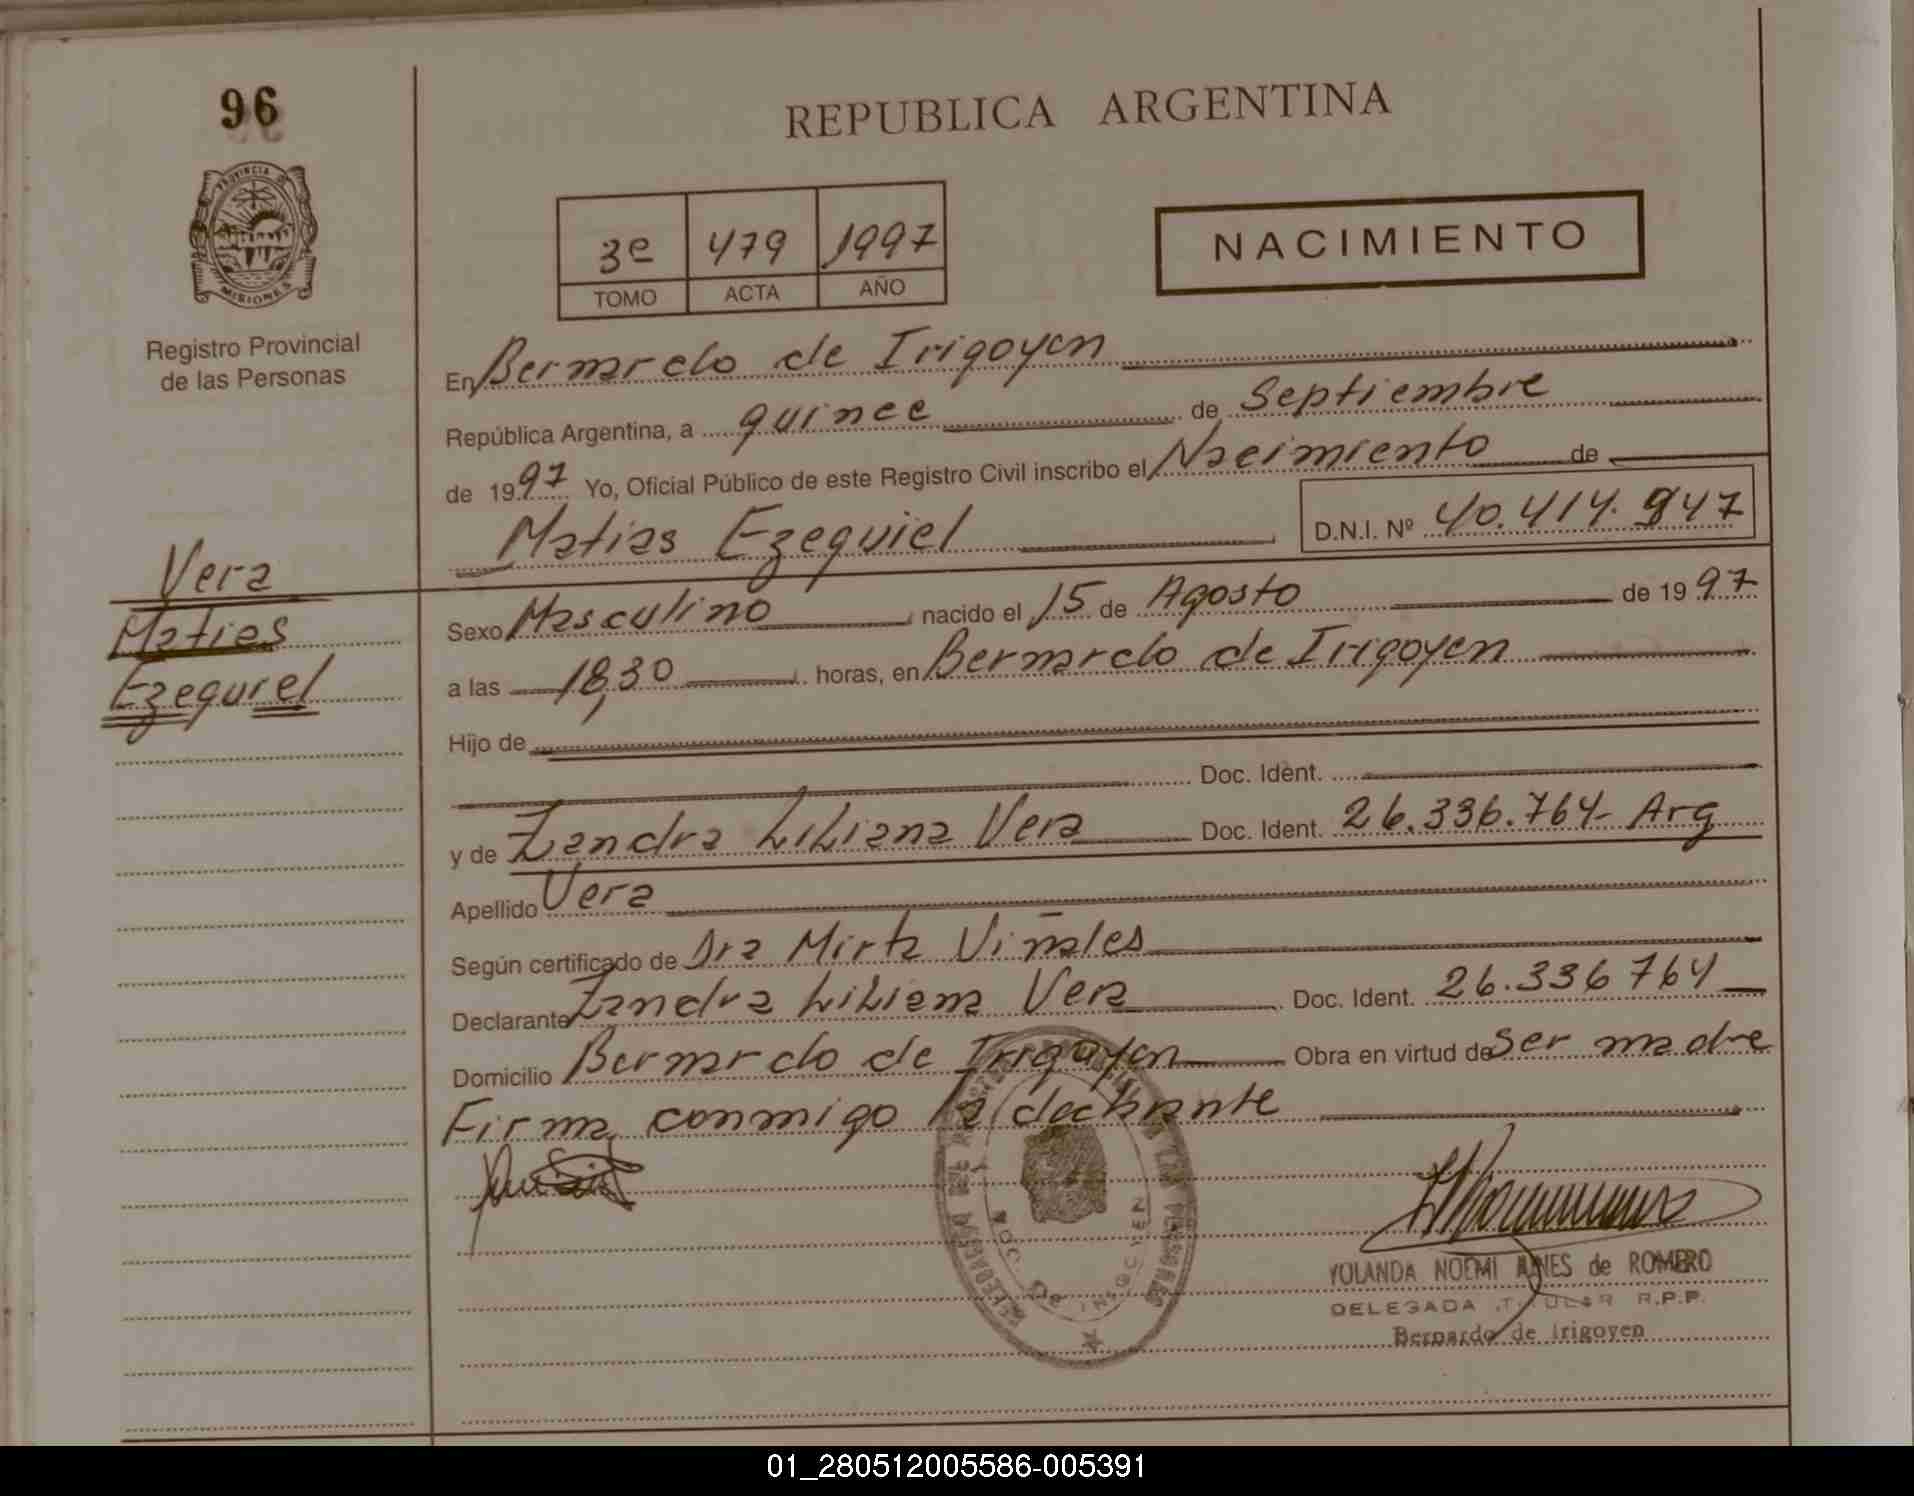 96
REPUBLICA ARGENTINA
PROVINCIA DE
MISIONES
Registro Provincial
de las Personas
3e 479 1997
TOMO ACTA AÑO
NACIMIENTO
En Bernardo de Irigoyen
República Argentina, a quince de Septiembre
de 1997 Yo, Oficial Público de este Registro Civil inscribo el Nacimiento de
Matias Ezequiel D.N.I. Nº 40.414.947
Vera
Matias
Ezequiel
Sexo Masculino nacido el 15 de Agosto de 1997
a las 18,30 horas, en Bernardo de Irigoyen
Hijo de
Doc. Ident.
y de Zandra Liliana Vera Doc. Ident. 26.336.764- Arg
Apellido Vera
Según certificado de Dra Mirta Viñales
Declarante Zandra Liliana Vera Doc. Ident. 26.336 764
Domicilio Bernardo de Irigoyen Obra en virtud de Ser madre
Firma conmigo la declarante
YOLANDA NOEMI de ROMERO
DELEGADA TITULAR R.P.P.
Bernardo de Irigoyen
01_280512005586-005391